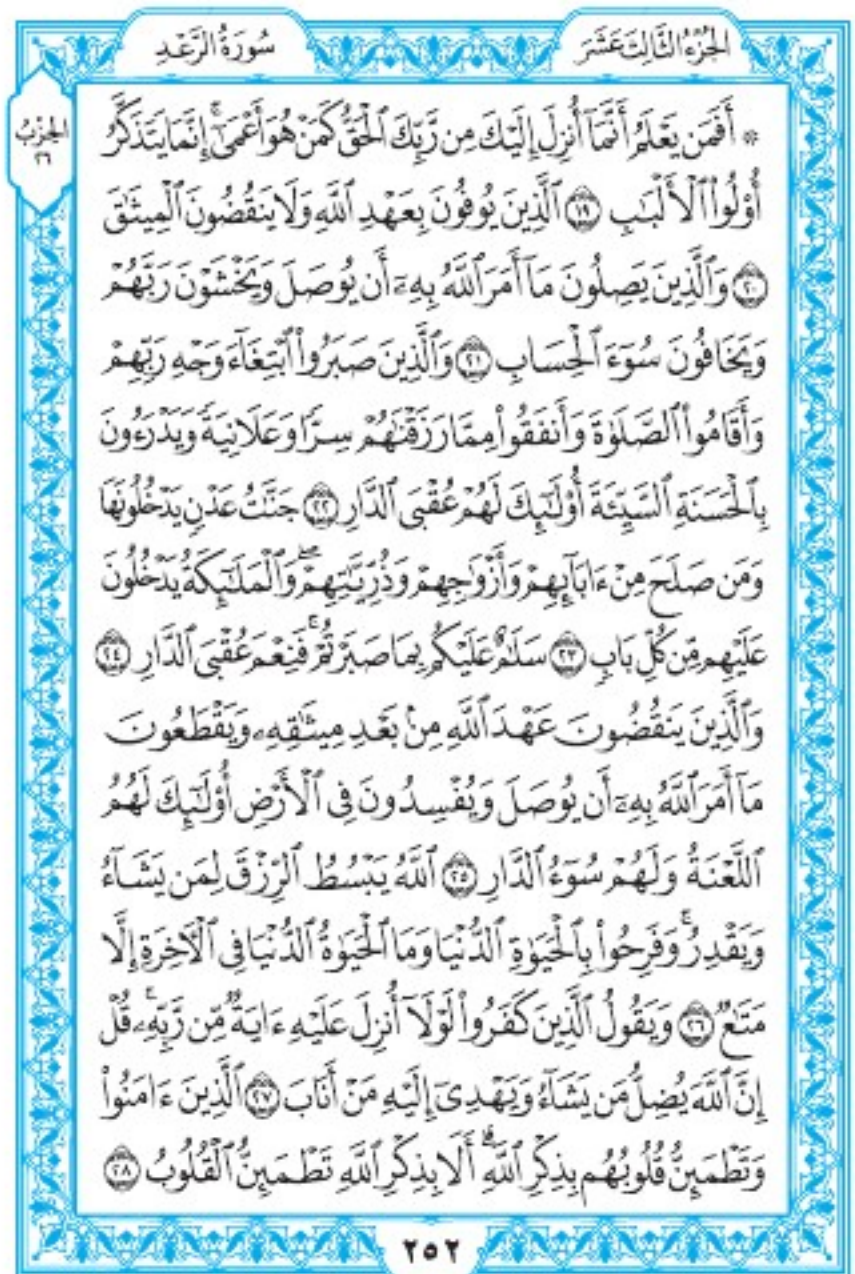 الجُزْءُ الثَّالِثَ عَشَرَ
سُورَةُ الرَّعْدِ
الحِزْبُ
٢٦
۞ أَفَمَن يَعْلَمُ أَنَّمَآ أُنزِلَ إِلَيْكَ مِن رَّبِّكَ ٱلْحَقُّ كَمَنْ هُوَ أَعْمَىٰٓۚ إِنَّمَا يَتَذَكَّرُ
أُوْلُواْ ٱلْأَلْبَٰبِ ١٩ ٱلَّذِينَ يُوفُونَ بِعَهْدِ ٱللَّهِ وَلَا يَنقُضُونَ ٱلْمِيثَٰقَ
٢٠ وَٱلَّذِينَ يَصِلُونَ مَآ أَمَرَ ٱللَّهُ بِهِۦٓ أَن يُوصَلَ وَيَخْشَوْنَ رَبَّهُمْ
وَيَخَافُونَ سُوٓءَ ٱلْحِسَابِ ٢١ وَٱلَّذِينَ صَبَرُواْ ٱبْتِغَآءَ وَجْهِ رَبِّهِمْ
وَأَقَامُواْ ٱلصَّلَوٰةَ وَأَنفَقُواْ مِمَّا رَزَقْنَٰهُمْ سِرًّا وَعَلَانِيَةً وَيَدْرَءُونَ
بِٱلْحَسَنَةِ ٱلسَّيِّئَةَ أُوْلَٰٓئِكَ لَهُمْ عُقْبَى ٱلدَّارِ ٢٢ جَنَّٰتُ عَدْنٍ يَدْخُلُونَهَا
وَمَن صَلَحَ مِنْ ءَابَآئِهِمْ وَأَزْوَٰجِهِمْ وَذُرِّيَّٰتِهِمْۖ وَٱلْمَلَٰٓئِكَةُ يَدْخُلُونَ
عَلَيْهِم مِّن كُلِّ بَابٍ ٢٣ سَلَٰمٌ عَلَيْكُم بِمَا صَبَرْتُمْۚ فَنِعْمَ عُقْبَى ٱلدَّارِ ٢٤
وَٱلَّذِينَ يَنقُضُونَ عَهْدَ ٱللَّهِ مِنۢ بَعْدِ مِيثَٰقِهِۦ وَيَقْطَعُونَ
مَآ أَمَرَ ٱللَّهُ بِهِۦٓ أَن يُوصَلَ وَيُفْسِدُونَ فِي ٱلْأَرْضِ أُوْلَٰٓئِكَ لَهُمُ
ٱللَّعْنَةُ وَلَهُمْ سُوٓءُ ٱلدَّارِ ٢٥ ٱللَّهُ يَبْسُطُ ٱلرِّزْقَ لِمَن يَشَآءُ
وَيَقْدِرُۚ وَفَرِحُواْ بِٱلْحَيَوٰةِ ٱلدُّنْيَا وَمَا ٱلْحَيَوٰةُ ٱلدُّنْيَا فِي ٱلْأٓخِرَةِ إِلَّا
مَتَٰعٌ ٢٦ وَيَقُولُ ٱلَّذِينَ كَفَرُواْ لَوْلَآ أُنزِلَ عَلَيْهِ ءَايَةٌ مِّن رَّبِّهِۦۚ قُلْ
إِنَّ ٱللَّهَ يُضِلُّ مَن يَشَآءُ وَيَهْدِيٓ إِلَيْهِ مَنْ أَنَابَ ٢٧ ٱلَّذِينَ ءَامَنُواْ
وَتَطْمَئِنُّ قُلُوبُهُم بِذِكْرِ ٱللَّهِۗ أَلَا بِذِكْرِ ٱللَّهِ تَطْمَئِنُّ ٱلْقُلُوبُ ٢٨
٢٥٢